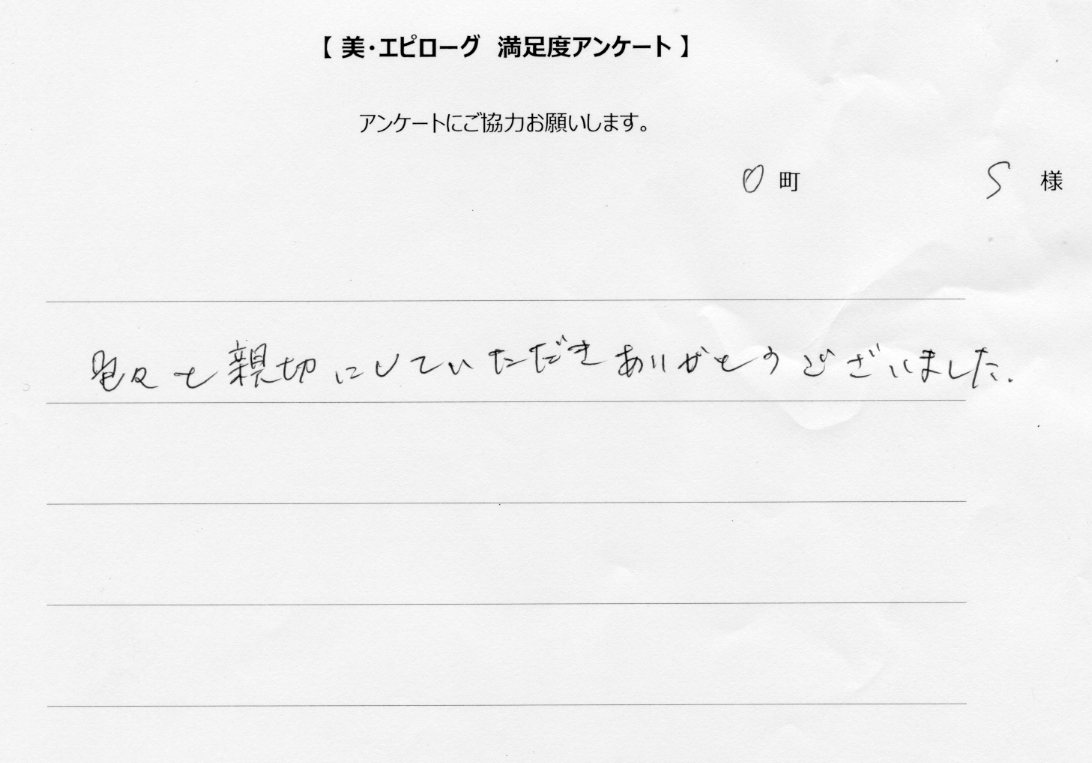 【 美・エピローグ 満足度アンケート 】
アンケートにご協力お願いします。
O 町 S 様
色々と親切にしていただきありがとうございました.